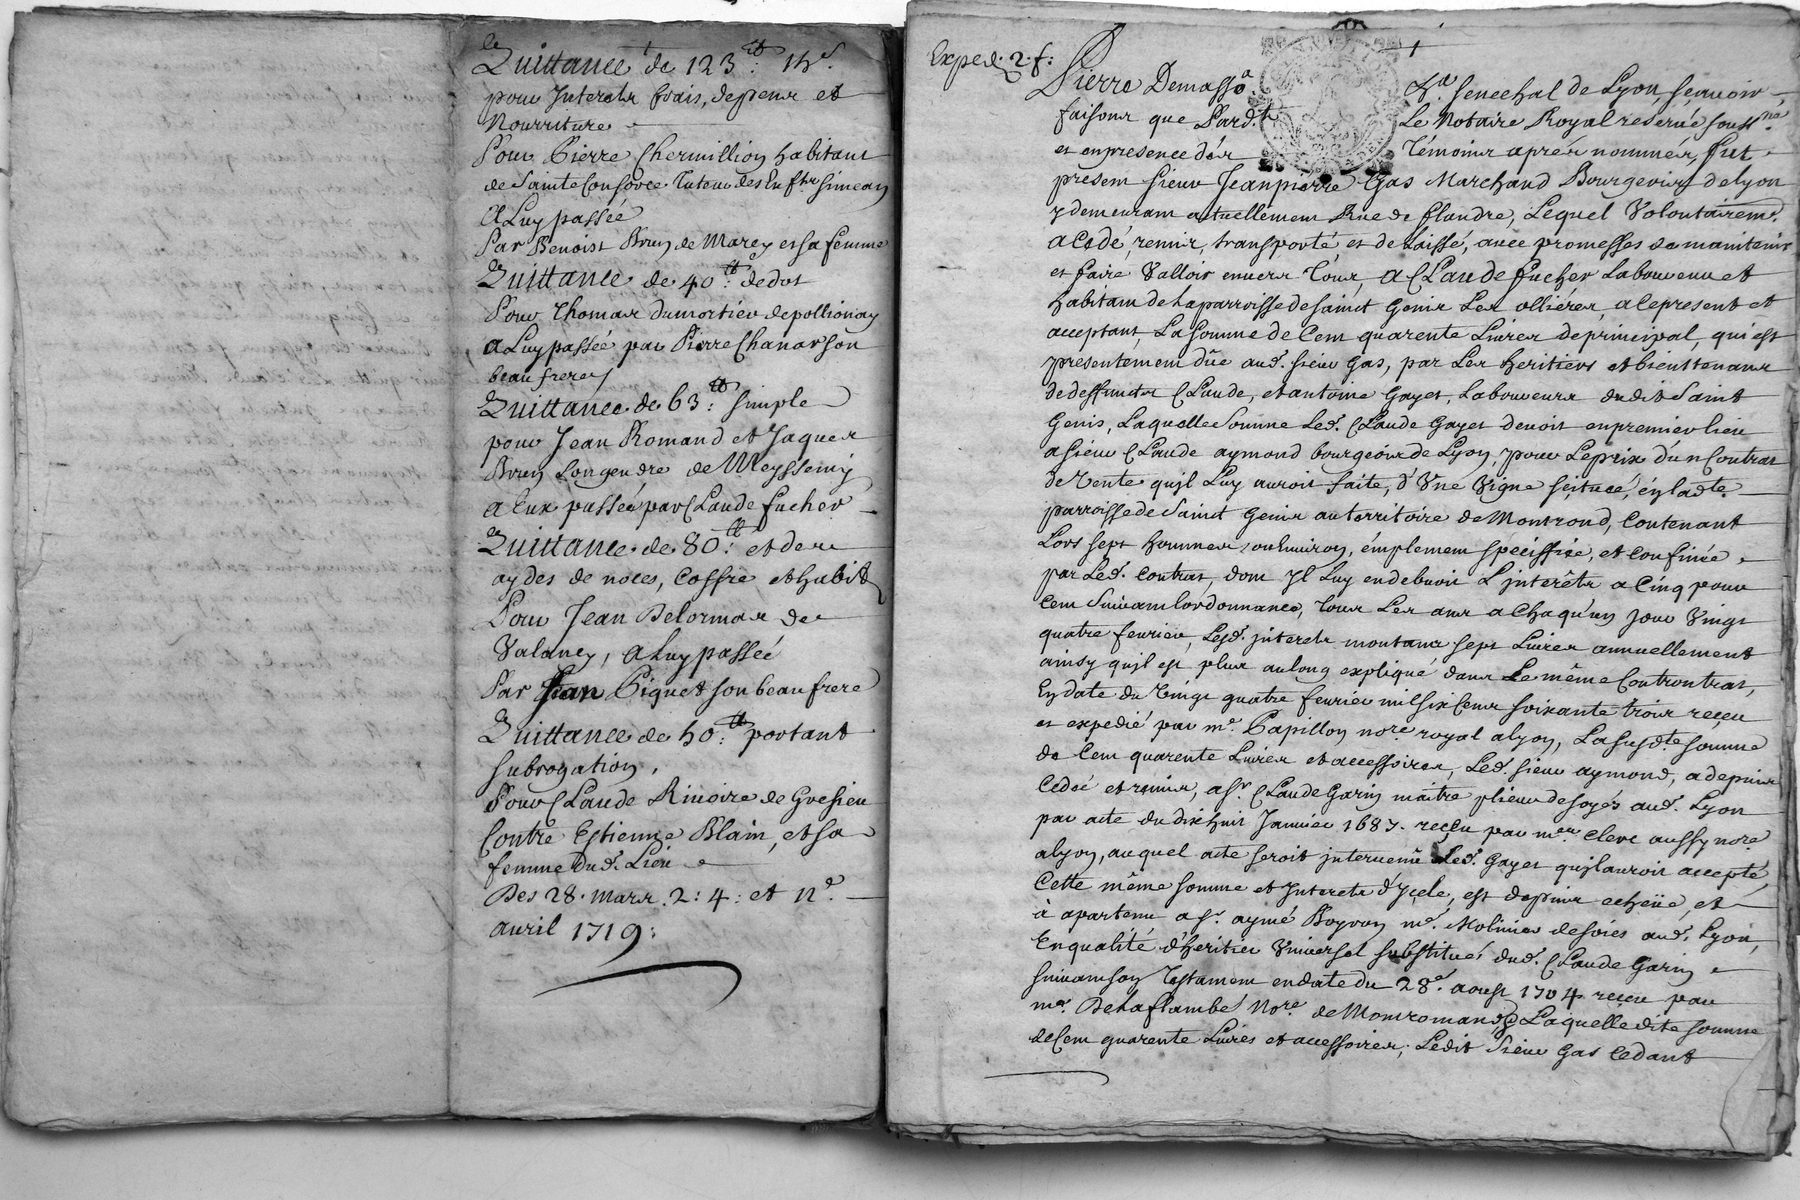 Quittance de 123tt: 1hs
pour Interetz frais, depens et
Nourriture
Pour Pierre Chermillion habitant
de Sainte Consorce Tuteur des Enftz simean
A Luy passée
Par Benoist Brun de Marcy et sa femme
Quittance de 40tt: de dot
Pour Thomas dumortier de pollionay
a Luy passée par Pierre Chanas son
beau frere
Quittance de 63:tt simple
pour Jean Romand et Jaques
Brun son gendre de Meyssemy
a Eux passée par Claude fucher
Quittance de 80:tt et des
aydes de noces, coffre et habit
Pour Jean Delormas de
Valancy, a Luy passée
Par Jean Piguet son beau frere
Quittance de 50:tt portant
subrogation,
Pour Claude Rivoire de Gresieu
Contre Estienne Blain, et sa
femme dud. Lieu
Des 28. mars. 2: 4: et 12e
avril 1719:
Exped. 2. f: 1
Pierre Demasso senechal de Lyon, sçavoir
faisons que Pard.t Le Notaire Royal reservé soussne
et en presence des Témoins aprés nommés, fut
present sieur Jean pierre Gas Marchand Bourgeois de lyon
y demeurant actuellement Rue de flandre, Lequel Volontairemt.
a cedé, remis, transporté et delaissé, avec promesses de maintenir
et faire Valloir envers Tous, a Claude fucher Laboureur et
habitant de La parroisse de sainct Genis Les ollières, a ce present et
acceptant, La somme de Cent quarente Livres de principal, qui est
presentement düe aud. sieur Gas, par Les heritiers et bienttenans
de deffunctz Claude, et antoine Gayet, Laboureurs dudit Saint
Genis, Laquelle Somme Led. Claude Gayet devoit en premier lieu
a sieur Claude aymond bourgeois de Lyon, pour Le prix d'un Contrat
de Vente qu'jl Luy auroit faite, d'Une Vigne scituée, en lad.te
parroisse de Sainct Genis au territoire de Montrond, Contenant
Lors sept hommes ou environ, emplement speciffiée, et confinée
par Led. Contrat, dont Jl Luy en debvoit L'jnterêts a Cinq pour
Cent Suivant L'ordonnance, tous Les ans a Chaqu'un jour Vingt
quatre fevrier, Lesd. jnterets montans sept Livres annuellement
ainsy qu'jl est plus au long expliqué dans Le même Controntrat,
En date du Vingt quatre fevrier mil six Cens soixante trois reçeu
et expedié par me. Papillon nore royal a lyon, La susd.te somme
de Cent quarente Livres et accessoires, Led. sieur aymond, a depuis
Cedée et remis, a sr. Claude Garin maitre plieur de soyes aud. Lyon
par acte du dix huit Janvier 1687. reçeu par me Clerc aussy nore
a lyon, auquel acte seroit jntervenu Led. Gayet qu'jl auroit accepté,
Cette même somme et Jnterets d'Jcele, est depuis echeüe, et
à apartenu a sr. aymé Boyron me. Molinier de soies aud. Lyon,
En qualité d'heritier Universel substitué dud. Claude Garin
suivant son Testament en date du 28e. aoust 1704 reçeu par
me. Delaflambe Nore. de Montromand, Laquelle dite somme
de Cent quarente Livres et accessoires, Ledit Sieur Gas Cedant